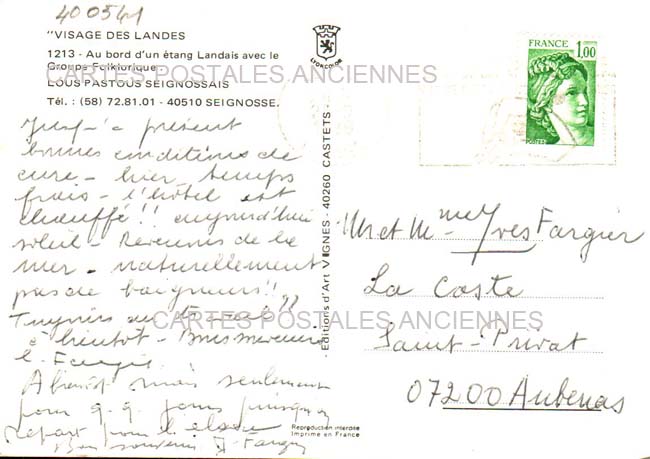 400541
"VISAGE DES LANDES
1213 - Au bord d'un étang Landais avec le
Groupe Folklorique
CARTES POSTALES ANCIENNES
LOUS PASTOUS SEIGNOSSAIS
Tél. : (58) 72.81.01 - 40510 SEIGNOSSE.
LYONCOLOR
FRANCE
1,00
POSTES
Jusqu'à présent
bonnes conditions de
cure - hier temps
frais - l'hôtel est
chauffé !! aujourd'hui
soleil - Revenons de la
mer - naturellement
pas de baigneurs !!
Toujours au
CARTES POSTALES ANCIENNES
à bientôt - Bons
A bientôt mais seulement
pour q.q. jours puisque
départ pour l'
Bon souvenir
- Editions d'Art VIGNES - 40260 CASTETS -
Mr et Mme Yves Fargier
La Coste
Saint-Privat
07200 Aubenas
Reproduction interdite
Imprimé en France